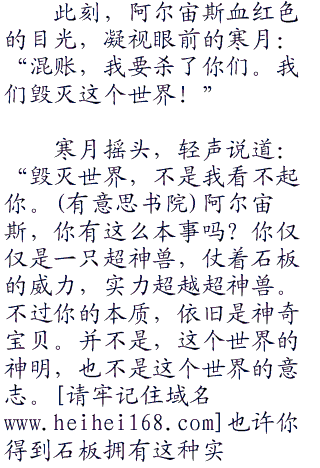 此刻，阿尔宙斯血红色
的目光，凝视眼前的寒月：
“混账，我要杀了你们。我
们毁灭这个世界！”
寒月摇头，轻声说道：
“毁灭世界，不是我看不起
你。(有意思书院)阿尔宙
斯，你有这么本事吗？你仅
仅是一只超神兽，仗着石板
的威力，实力超越超神兽。
不过你的本质，依旧是神奇
宝贝。并不是，这个世界的
神明，也不是这个世界的意
志。[请牢记住域名
www.heihei168.com]也许你
得到石板拥有这种实